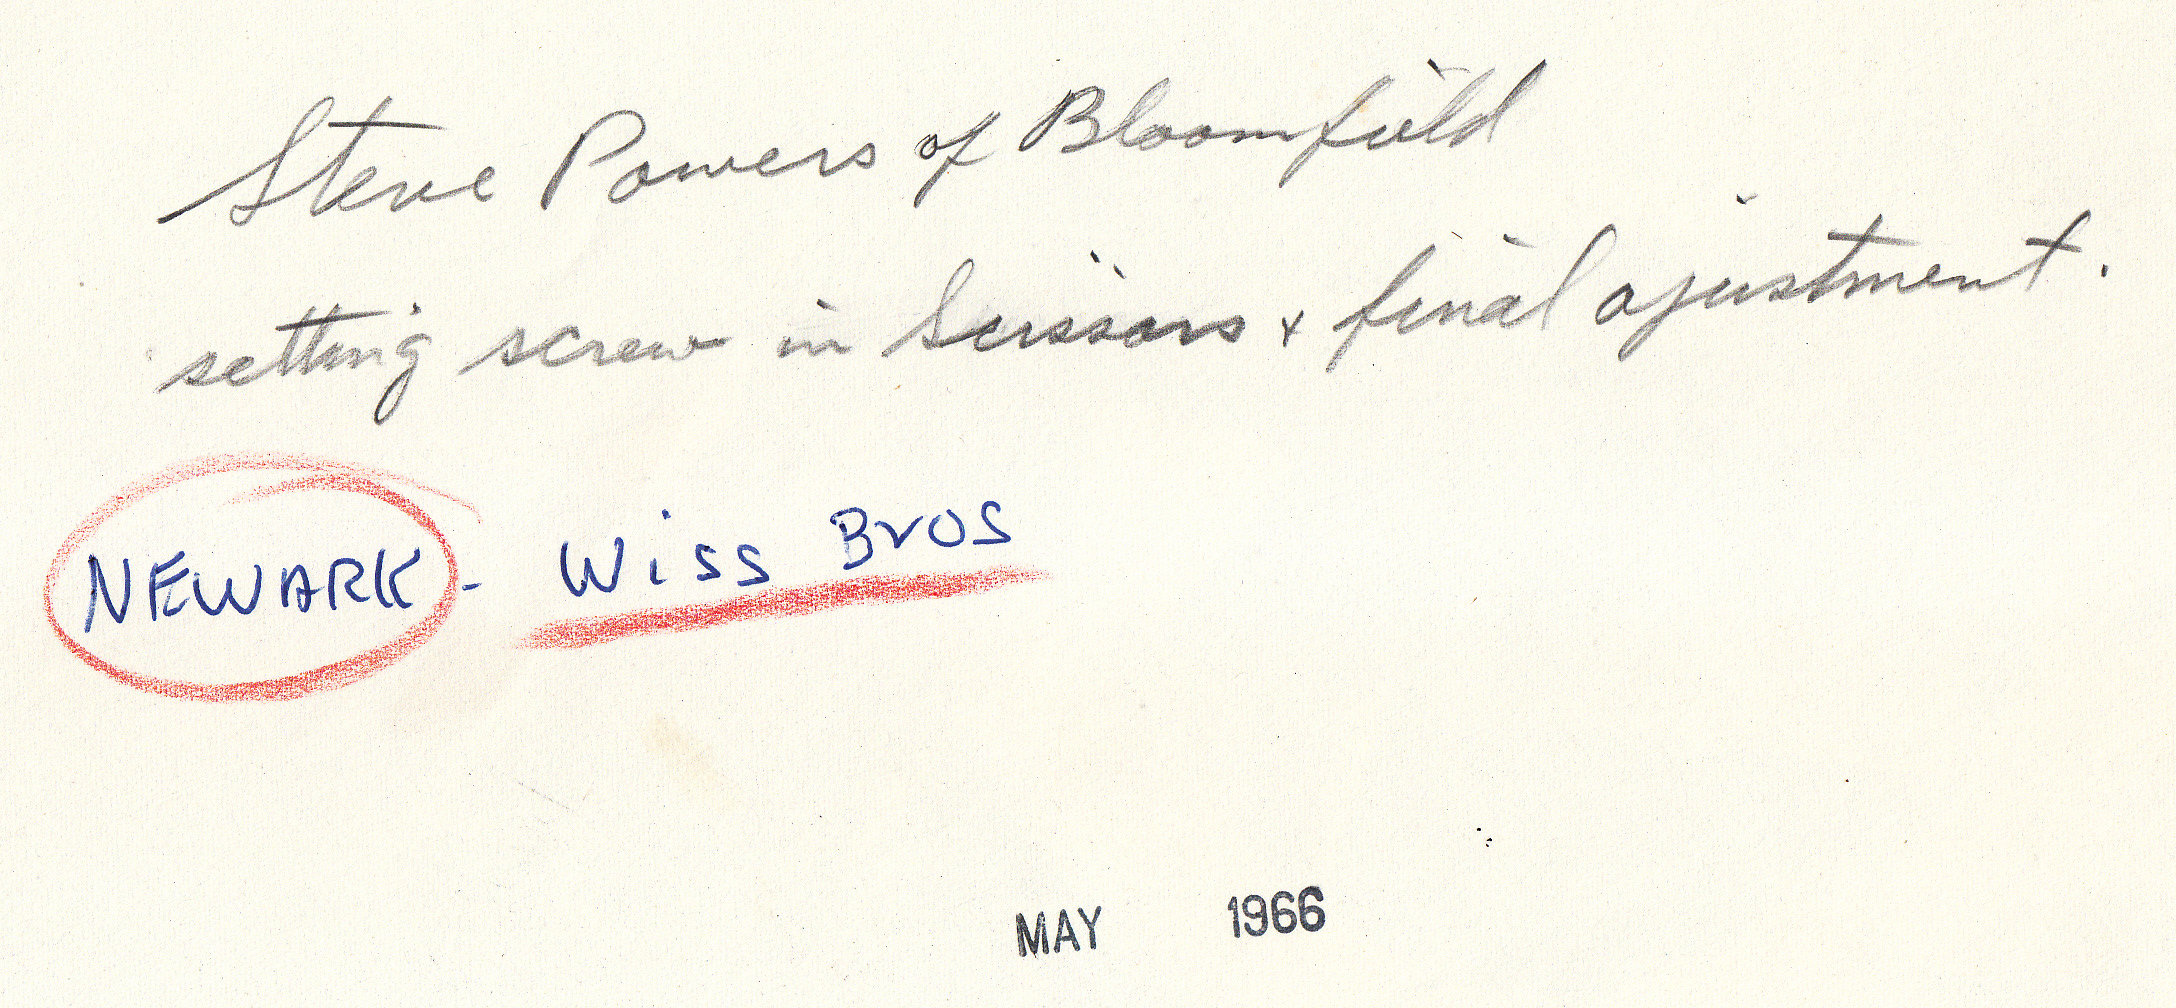 Steve Powers of Bloomfield
setting screw in Scissors & final ajustment.
NEWARK - Wiss Bros
MAY 1966